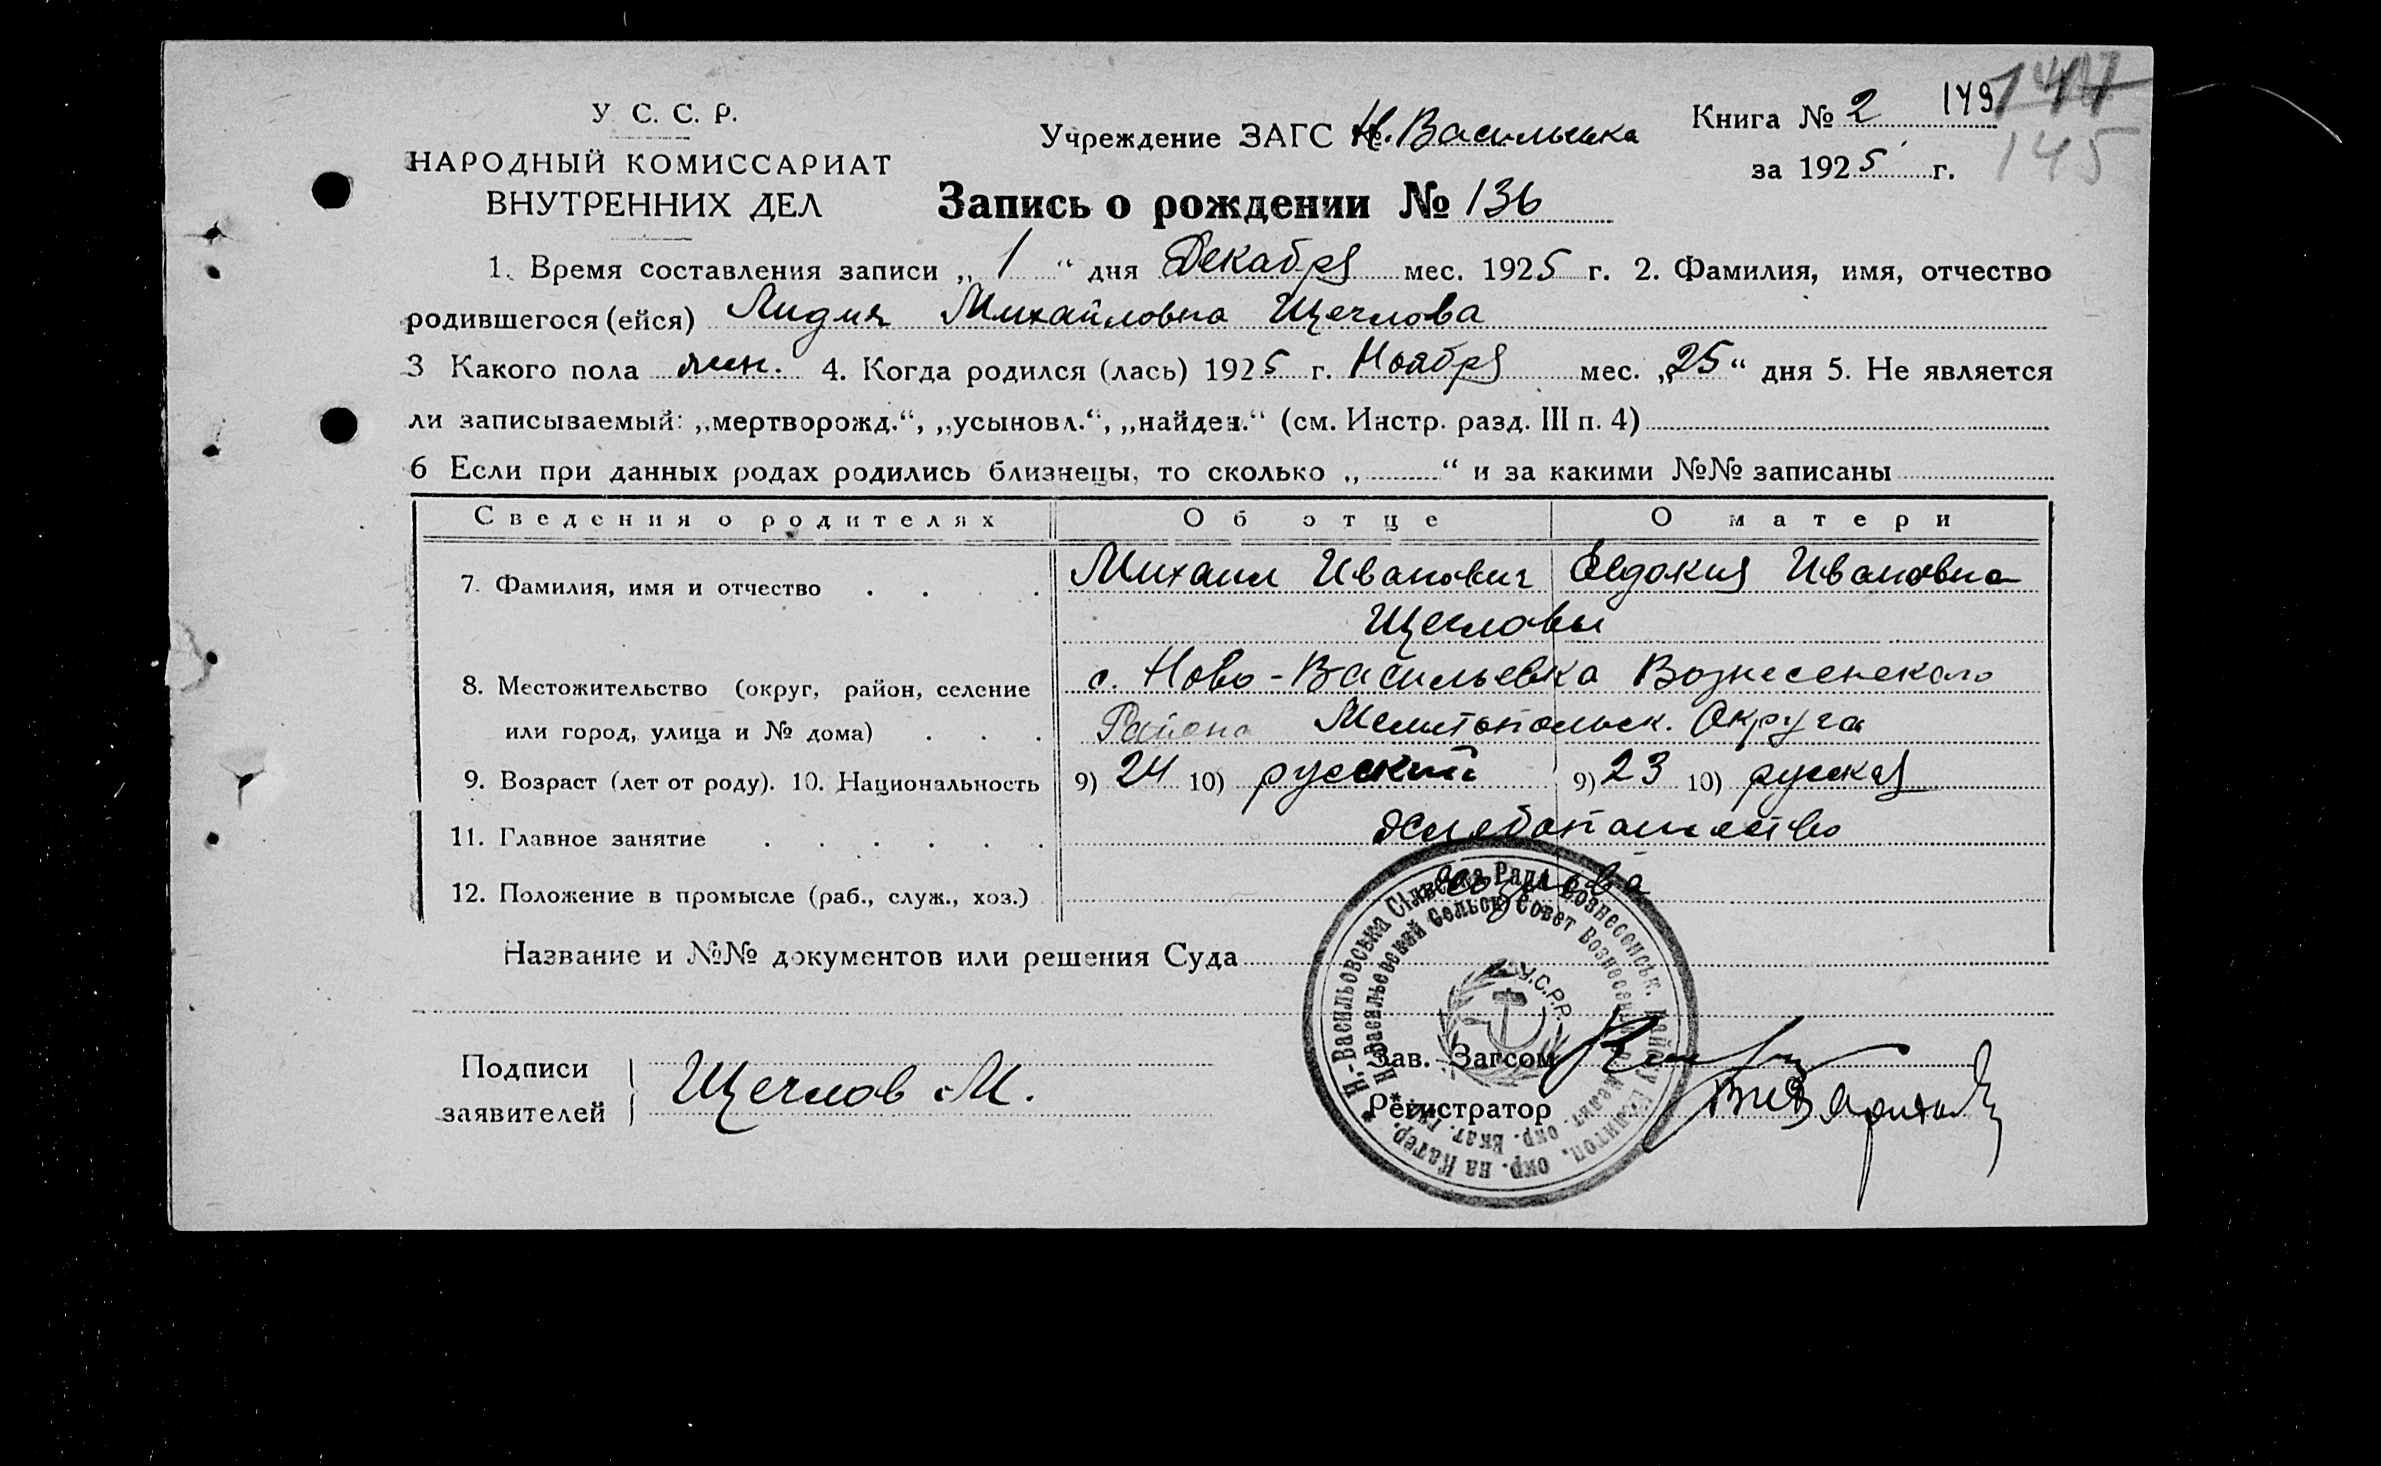 У. С. С. Р.
НАРОДНЫЙ КОМИССАРИАТ
ВНУТРЕННИХ ДЕЛ
Учреждение ЗАГС Н. Васильевка
Книга № 2 149 147
за 1925 г. 145
Запись о рождении № 136
1. Время составления записи „ 1 “ дня Декабря мес. 1925 г. 2. Фамилия, имя, отчество
родившегося (ейся) Лидия Михайловна Щеглова
3 Какого пола жен. 4. Когда родился (лась) 1925 г. Ноября мес. „25“ дня 5. Не является
ли записываемый: „мертворожд.“, „усыновл.“, „найден.“ (см. Инстр. разд. III п. 4)
6 Если при данных родах родились близнецы, то сколько „ “ и за какими №№ записаны
Сведения о родителях Об отце О матери
7. Фамилия, имя и отчество . . . . Михаил Иванович Евдокия Ивановна
Щегловы
8. Местожительство (округ, район, селение с. Ново-Васильевка Вознесенского
или город, улица и № дома) . . . Района Мелитопольск. Округа
9. Возраст (лет от роду). 10. Национальность 9) 24 10) русский 9) 23 10) русская
11. Главное занятие . . . . . . Хлебопашество
12. Положение в промысле (раб., служ., хоз.)
Название и №№ документов или решения Суда
Н.-Васильовська Сільська Рада Вознесенськ. Райо́ну Мелитоп. окр. на Катер.
Н-Васильевский Сельск. Совет
У.С.Р.Р.
Подписи
заявителей Щеглов М.
Зав. Загсом
Регистратор